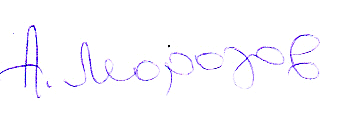 А. Морозов